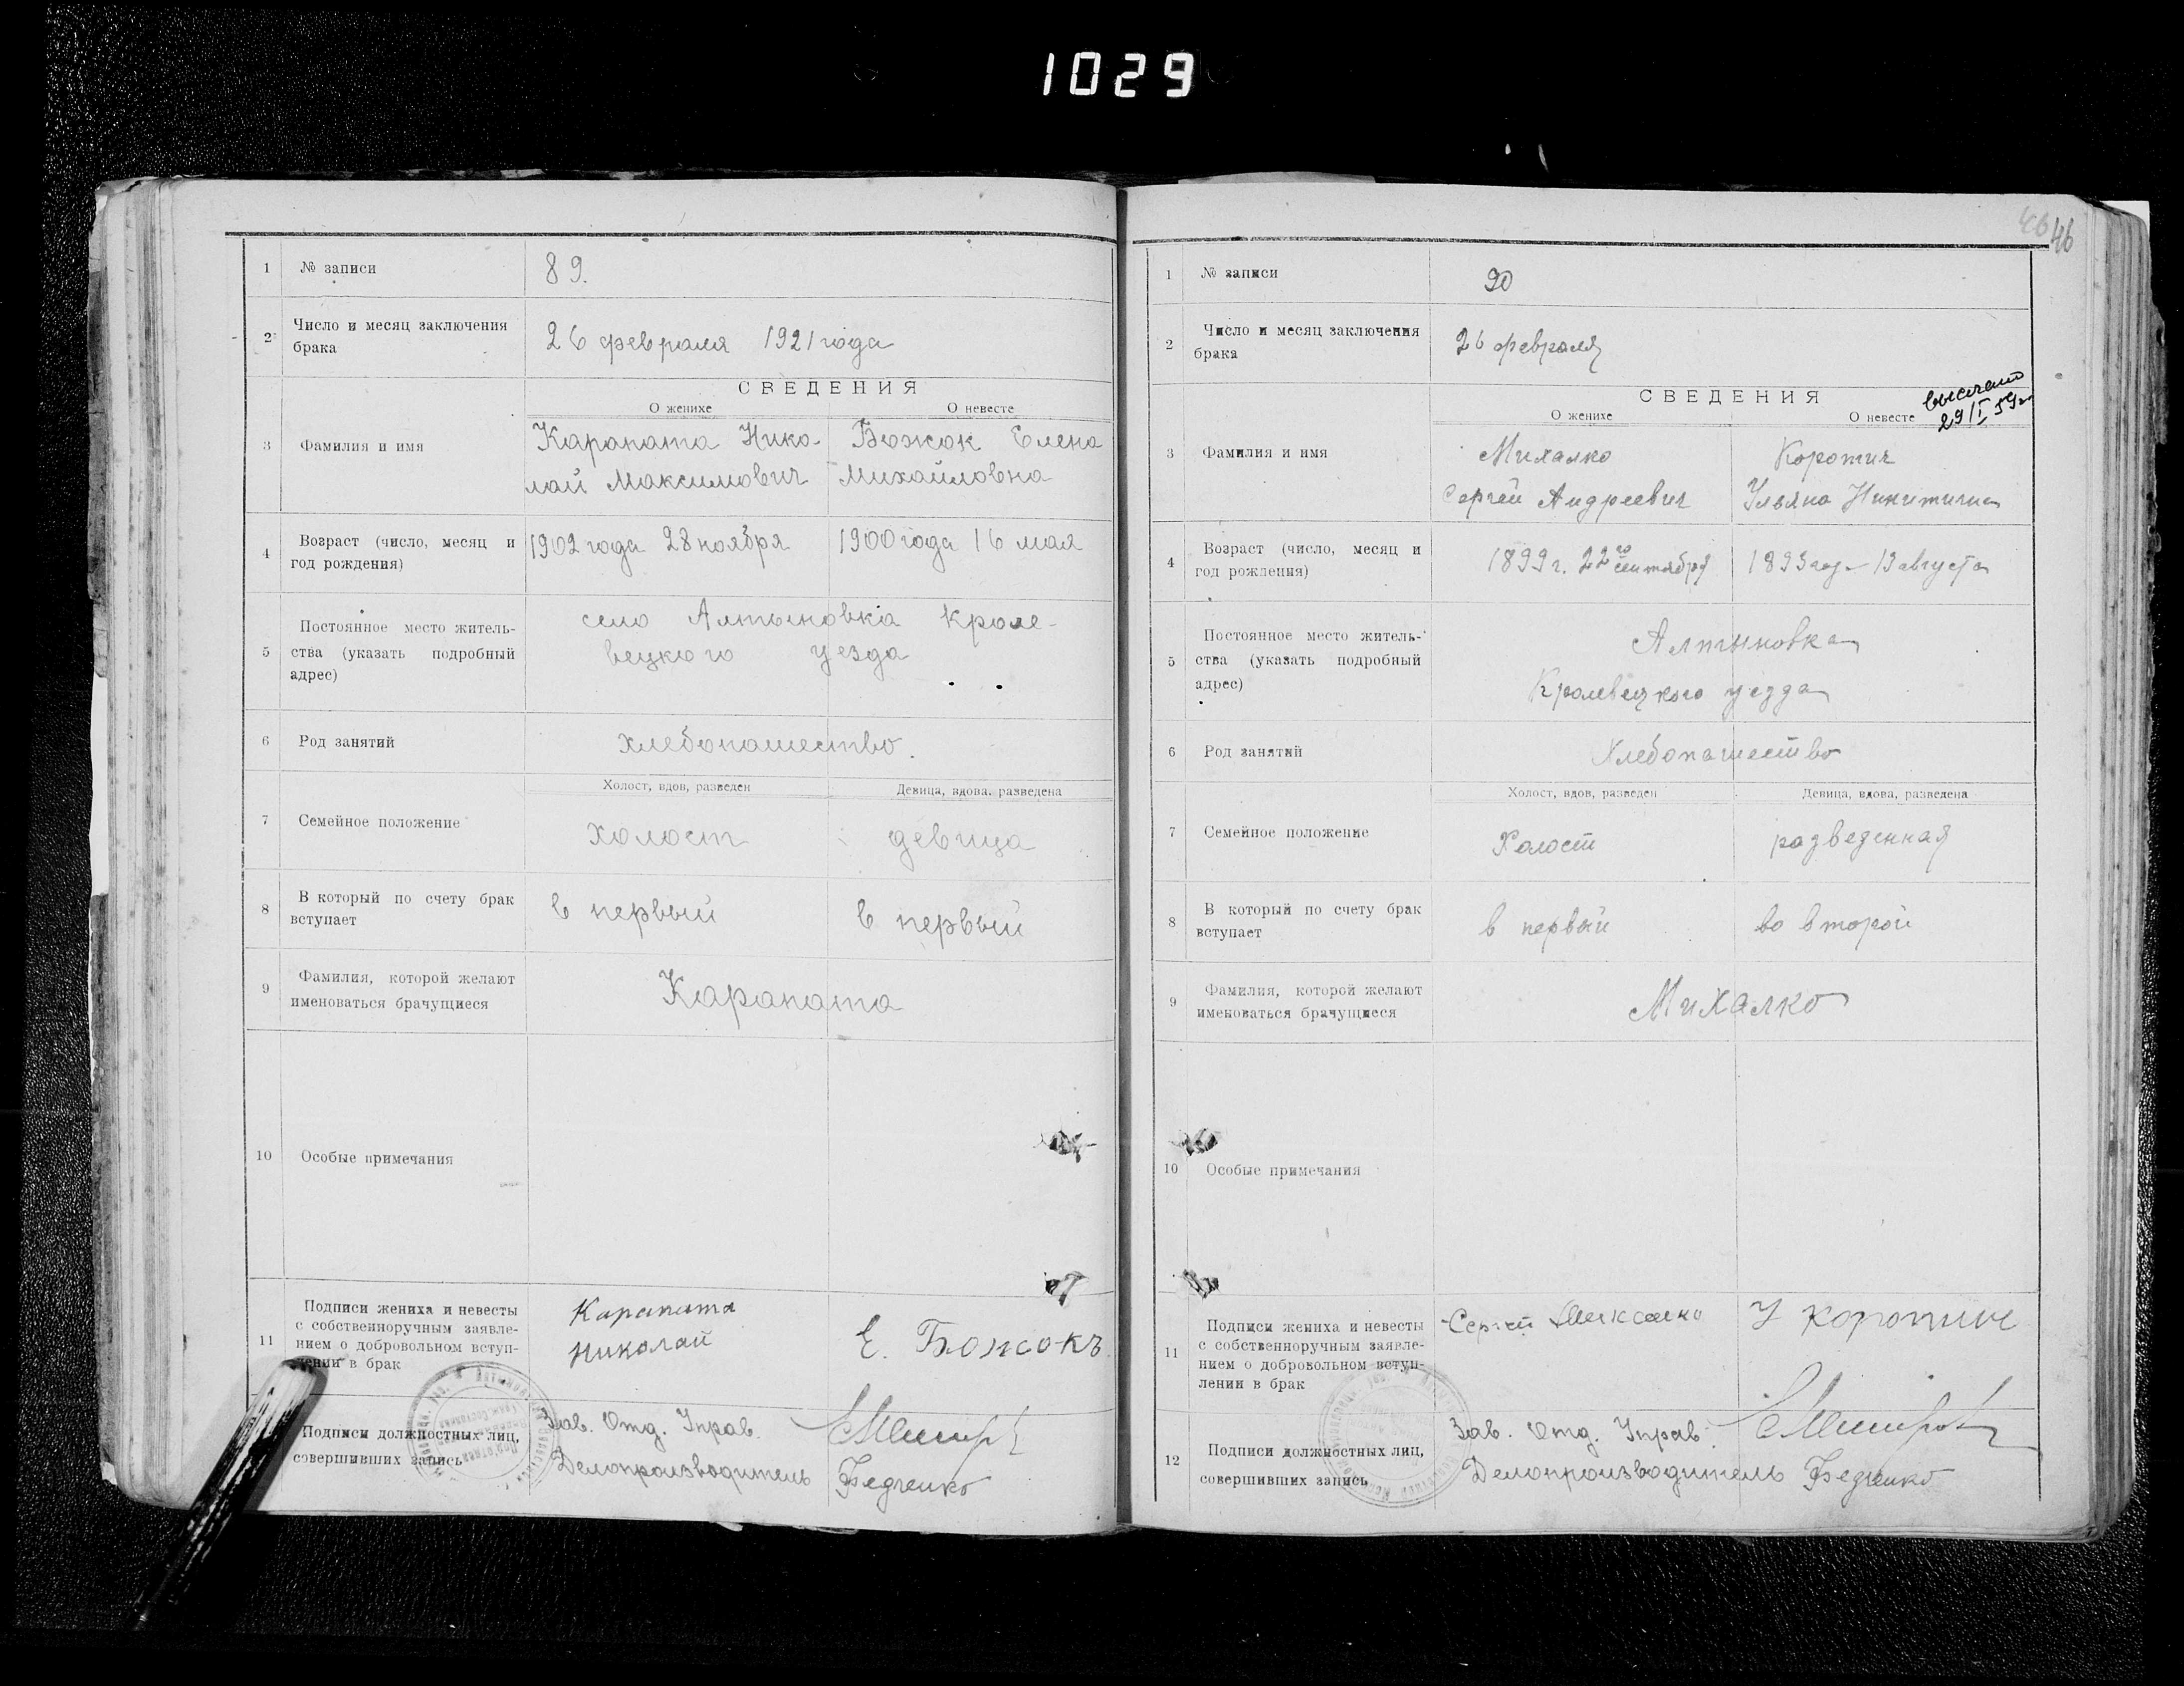 1029
1 № записи 89.
2 Число и месяц заключения
брака
26 февраля 1921 года
СВЕДЕНИЯ
О женихе О невесте
3 Фамилия и имя
Карапата Нико- Божок Елена
лай Максимович Михайловна
4 Возраст (число, месяц и
год рождения)
1902 года 28 ноября 1900 года 16 мая
5 Постоянное место житель-
ства (указать подробный
адрес)
село Алтыновка Кроле-
вецкого уезда
6 Род занятий хлебопашество.
Холост, вдов, разведен Девица, вдова, разведена
7 Семейное положение холост девица
8 В который по счету брак
вступает
в первый в первый
9 Фамилия, которой желают
именоваться брачущиеся
Карапата
10 Особые примечания
11 Подписи жениха и невесты
с собственноручным заявле-
нием о добровольном вступ-
лении в брак
Карапата
Николай
Е. Божокъ.
Подписи должностных лиц,
совершивших запись
Зав. Отд. Управ.
Делопроизводитель Федченко
46 46
1 № записи 90
2 Число и месяц заключения
брака
26 февраля
СВЕДЕНИЯ
О женихе О невесте
выслано
29/I 59г
3 Фамилия и имя
Михалко Коротич
Сергей Андреевич Ульяна Никитична
4 Возраст (число, месяц и
год рождения)
1899 г. 22го сентября 13 августа
5 Постоянное место житель-
ства (указать подробный
адрес)
Алтыновка
Кролевецкого уезда
6 Род занятий Хлебопашество
Холост, вдов, разведен Девица, вдова, разведена
7 Семейное положение Холост разведенная
8 В который по счету брак
вступает
в первый во второй
9 Фамилия, которой желают
именоваться брачущиеся
Михалко
10 Особые примечания
11 Подписи жениха и невесты
с собственноручным заявле-
нием о добровольном вступ-
лении в брак
Сергей Михалко У Коротич
12 Подписи должностных лиц,
совершивших запись
Зав. Отд. Управ.
Делопроизводитель Федченко